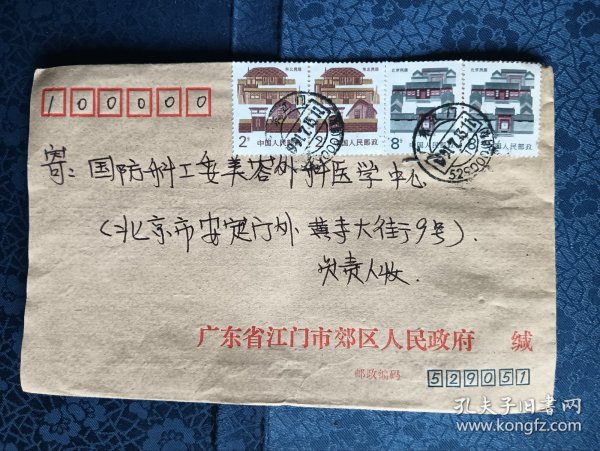 100000
东北民居 东北民居 北京民居 北京民居
2分 中国人民邮政 2分 中国人民邮政 8分 中国人民邮政 8分 中国人民邮政
寄：国防科工委美容外科医学中心
（北京市安定门外黄寺大街9号）．
负责人收．
广东省江门市郊区人民政府 缄
邮政编码 529051
孔夫子旧书网
www.kongfz.com